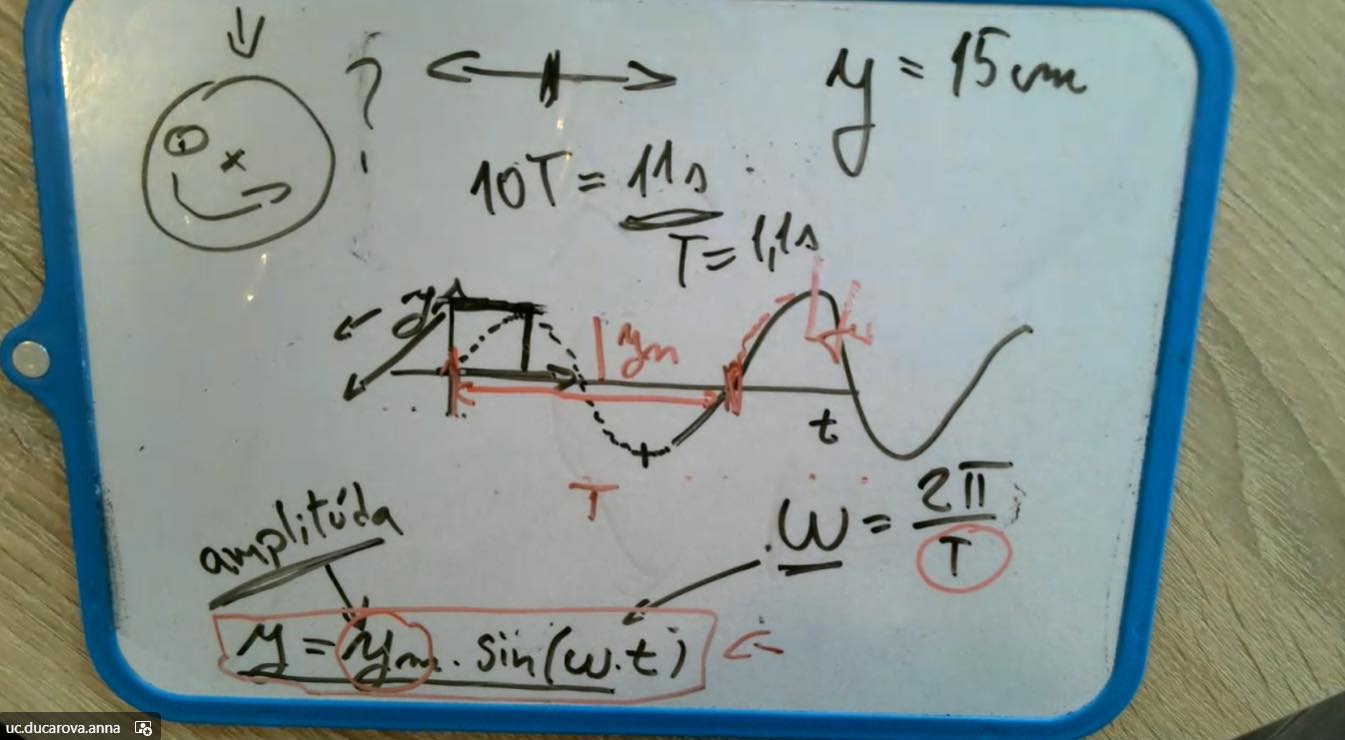 ?
y = 15 cm
10T = 11s
T = 1,1s
y
ym
t
T
ω = 2π / T
amplitúda
y = ym . sin(ω.t)
uc.ducarova.anna